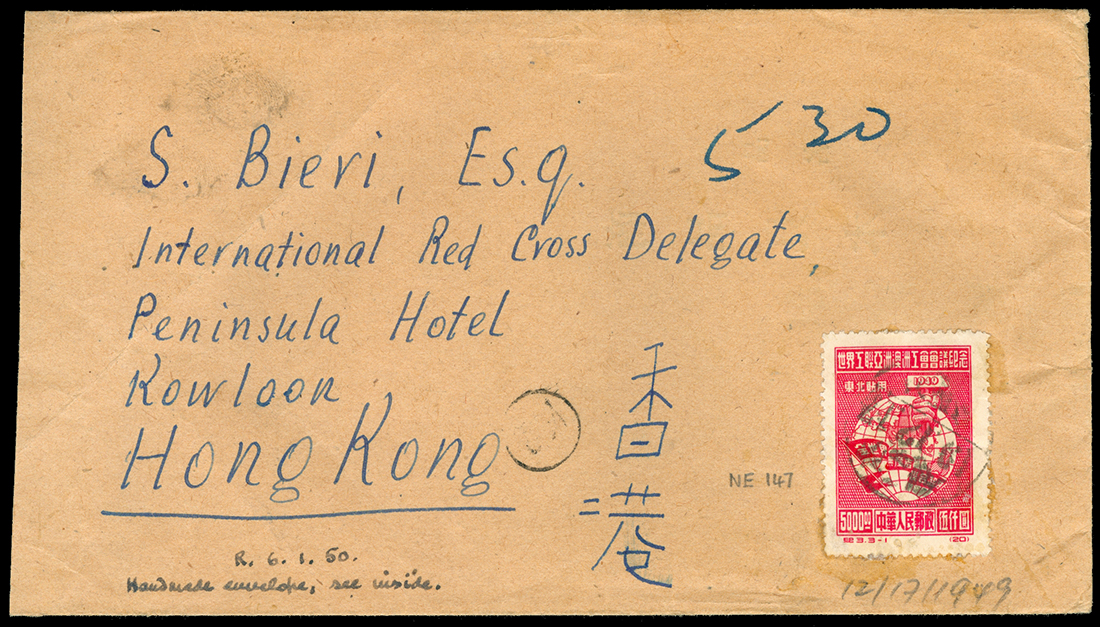 S. Bieri, Esq.
5 30
International Red Cross Delegate,
Peninsula Hotel
Kowloon
Hong Kong
香港
NE 147
世界工聯亞洲澳洲工會會議紀念
東北貼用
1949
5000圓 中華人民郵政 伍仟圓
紀3.3-1 (20)
R. 6. 1. 50.
Handmade envelope, see inside.
12/17/1949